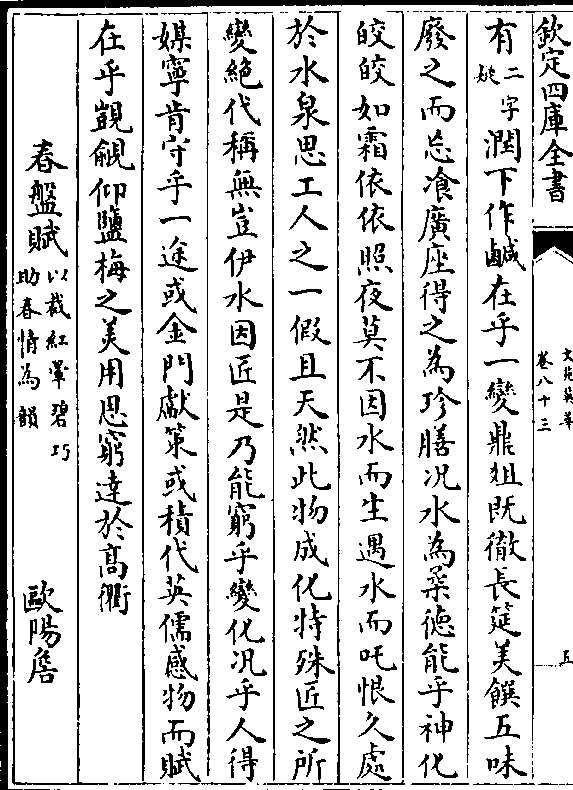 欽定四庫全書
文苑英華
卷八十三
五
有二字疑潤下作鹹在乎一變鼎俎既徹長筵美饌五味
廢之而忘飡廣座得之為珍膳况水為柔徳能乎神化
皎皎如霜依依照夜莫不因水而生遇水而吒恨久處
於水泉思工人之一假且天然此物成化特殊匠之所
變絶代稱無豈伊水因匠是乃能窮乎變化况乎人得
媒寧肯守乎一途或金門獻策或積代英儒感物而賦
在乎覬覦仰鹽梅之美用思窮達於髙衢
春盤賦以裁紅暈碧巧助春情為韻 歐陽詹